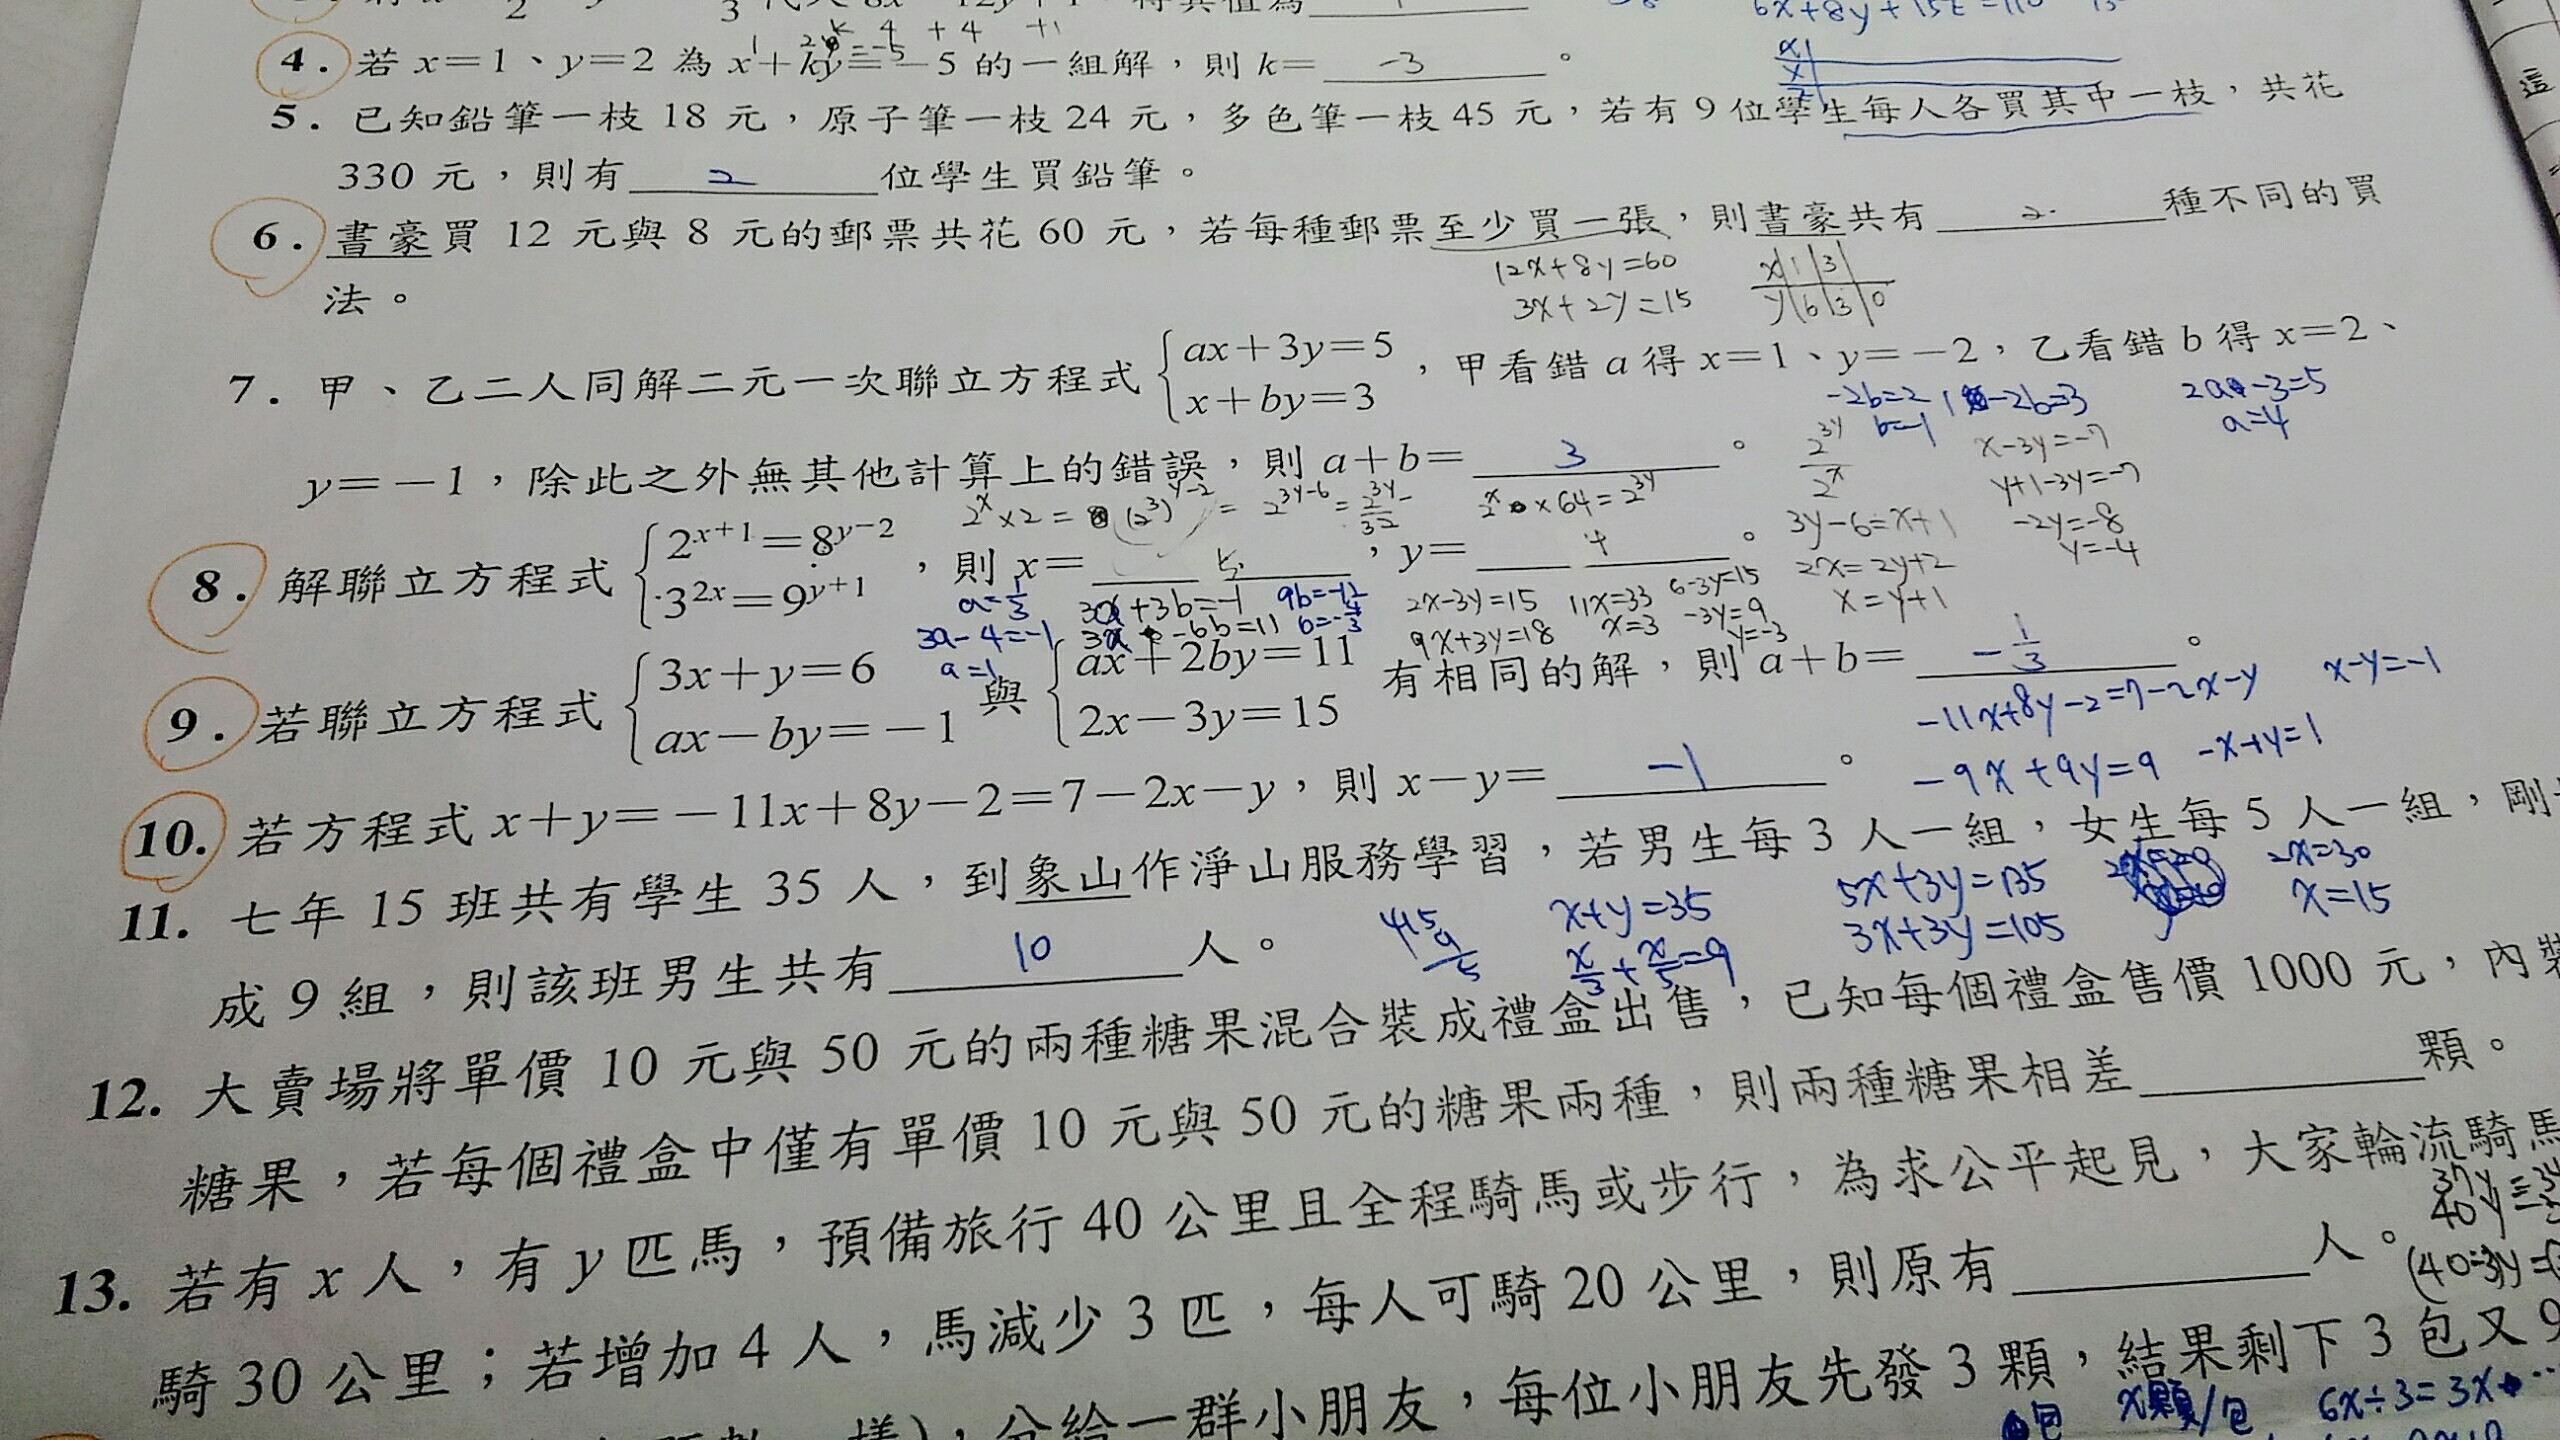 6x+8y+15z=110
4. 若 x=1、y=2 為 x+ky=-5 的一組解，則 k= -3 。
5. 已知鉛筆一枝 18 元，原子筆一枝 24 元，多色筆一枝 45 元，若有 9 位學生每人各買其中一枝，共花
330 元，則有 2 位學生買鉛筆。
6. 書豪買 12 元與 8 元的郵票共花 60 元，若每種郵票至少買一張，則書豪共有 2. 種不同的買
法。
12x+8y=60 x 1 3
3x+2y=15 y 6 3 0
7. 甲、乙二人同解二元一次聯立方程式 { ax+3y=5
x+by=3 ，甲看錯 a 得 x=1、y=-2，乙看錯 b 得 x=2、
-2b=2 1-2b=3 2a-3=5
b=-1 a=4
y=-1，除此之外無其他計算上的錯誤，則 a+b= 3 。
x-3y=-7
y+1-3y=-7
-2y=-8
y=-4
8. 解聯立方程式 { 2^{x+1}=8^{y-2}
3^{2x}=9^{y+1} ，則 x= 5 ，y= 4 。
3y-6=x+1
2x=2y+2
x=y+1
a=1/3 3a+3b=-1 9b=-12 2x-3y=15 11x=33 6-3y=15
3a-4=-1 9x+3y=18 x=3 -3y=9
a=1 y=-3
9. 若聯立方程式 { 3x+y=6
ax-by=-1 與 { ax+2by=11
2x-3y=15 有相同的解，則 a+b= -1/3 。
-11x+8y-2=7-2x-y x-y=-1
-9x+9y=9 -x+y=1
10. 若方程式 x+y=-11x+8y-2=7-2x-y，則 x-y= -1 。
11. 七年 15 班共有學生 35 人，到象山作淨山服務學習，若男生每 3 人一組，女生每 5 人一組，剛
x+y=35 5x+3y=135 2x=30
x/3+x/5=9 3x+3y=105 x=15
成 9 組，則該班男生共有 10 人。
12. 大賣場將單價 10 元與 50 元的兩種糖果混合裝成禮盒出售，已知每個禮盒售價 1000 元，內裝
糖果，若每個禮盒中僅有單價 10 元與 50 元的糖果兩種，則兩種糖果相差 顆。
13. 若有 x 人，有 y 匹馬，預備旅行 40 公里且全程騎馬或步行，為求公平起見，大家輪流騎馬
騎 30 公里；若增加 4 人，馬減少 3 匹，每人可騎 20 公里，則原有 人。
，分給一群小朋友，每位小朋友先發 3 顆，結果剩下 3 包又 9
x顆/包 6x÷3=3x